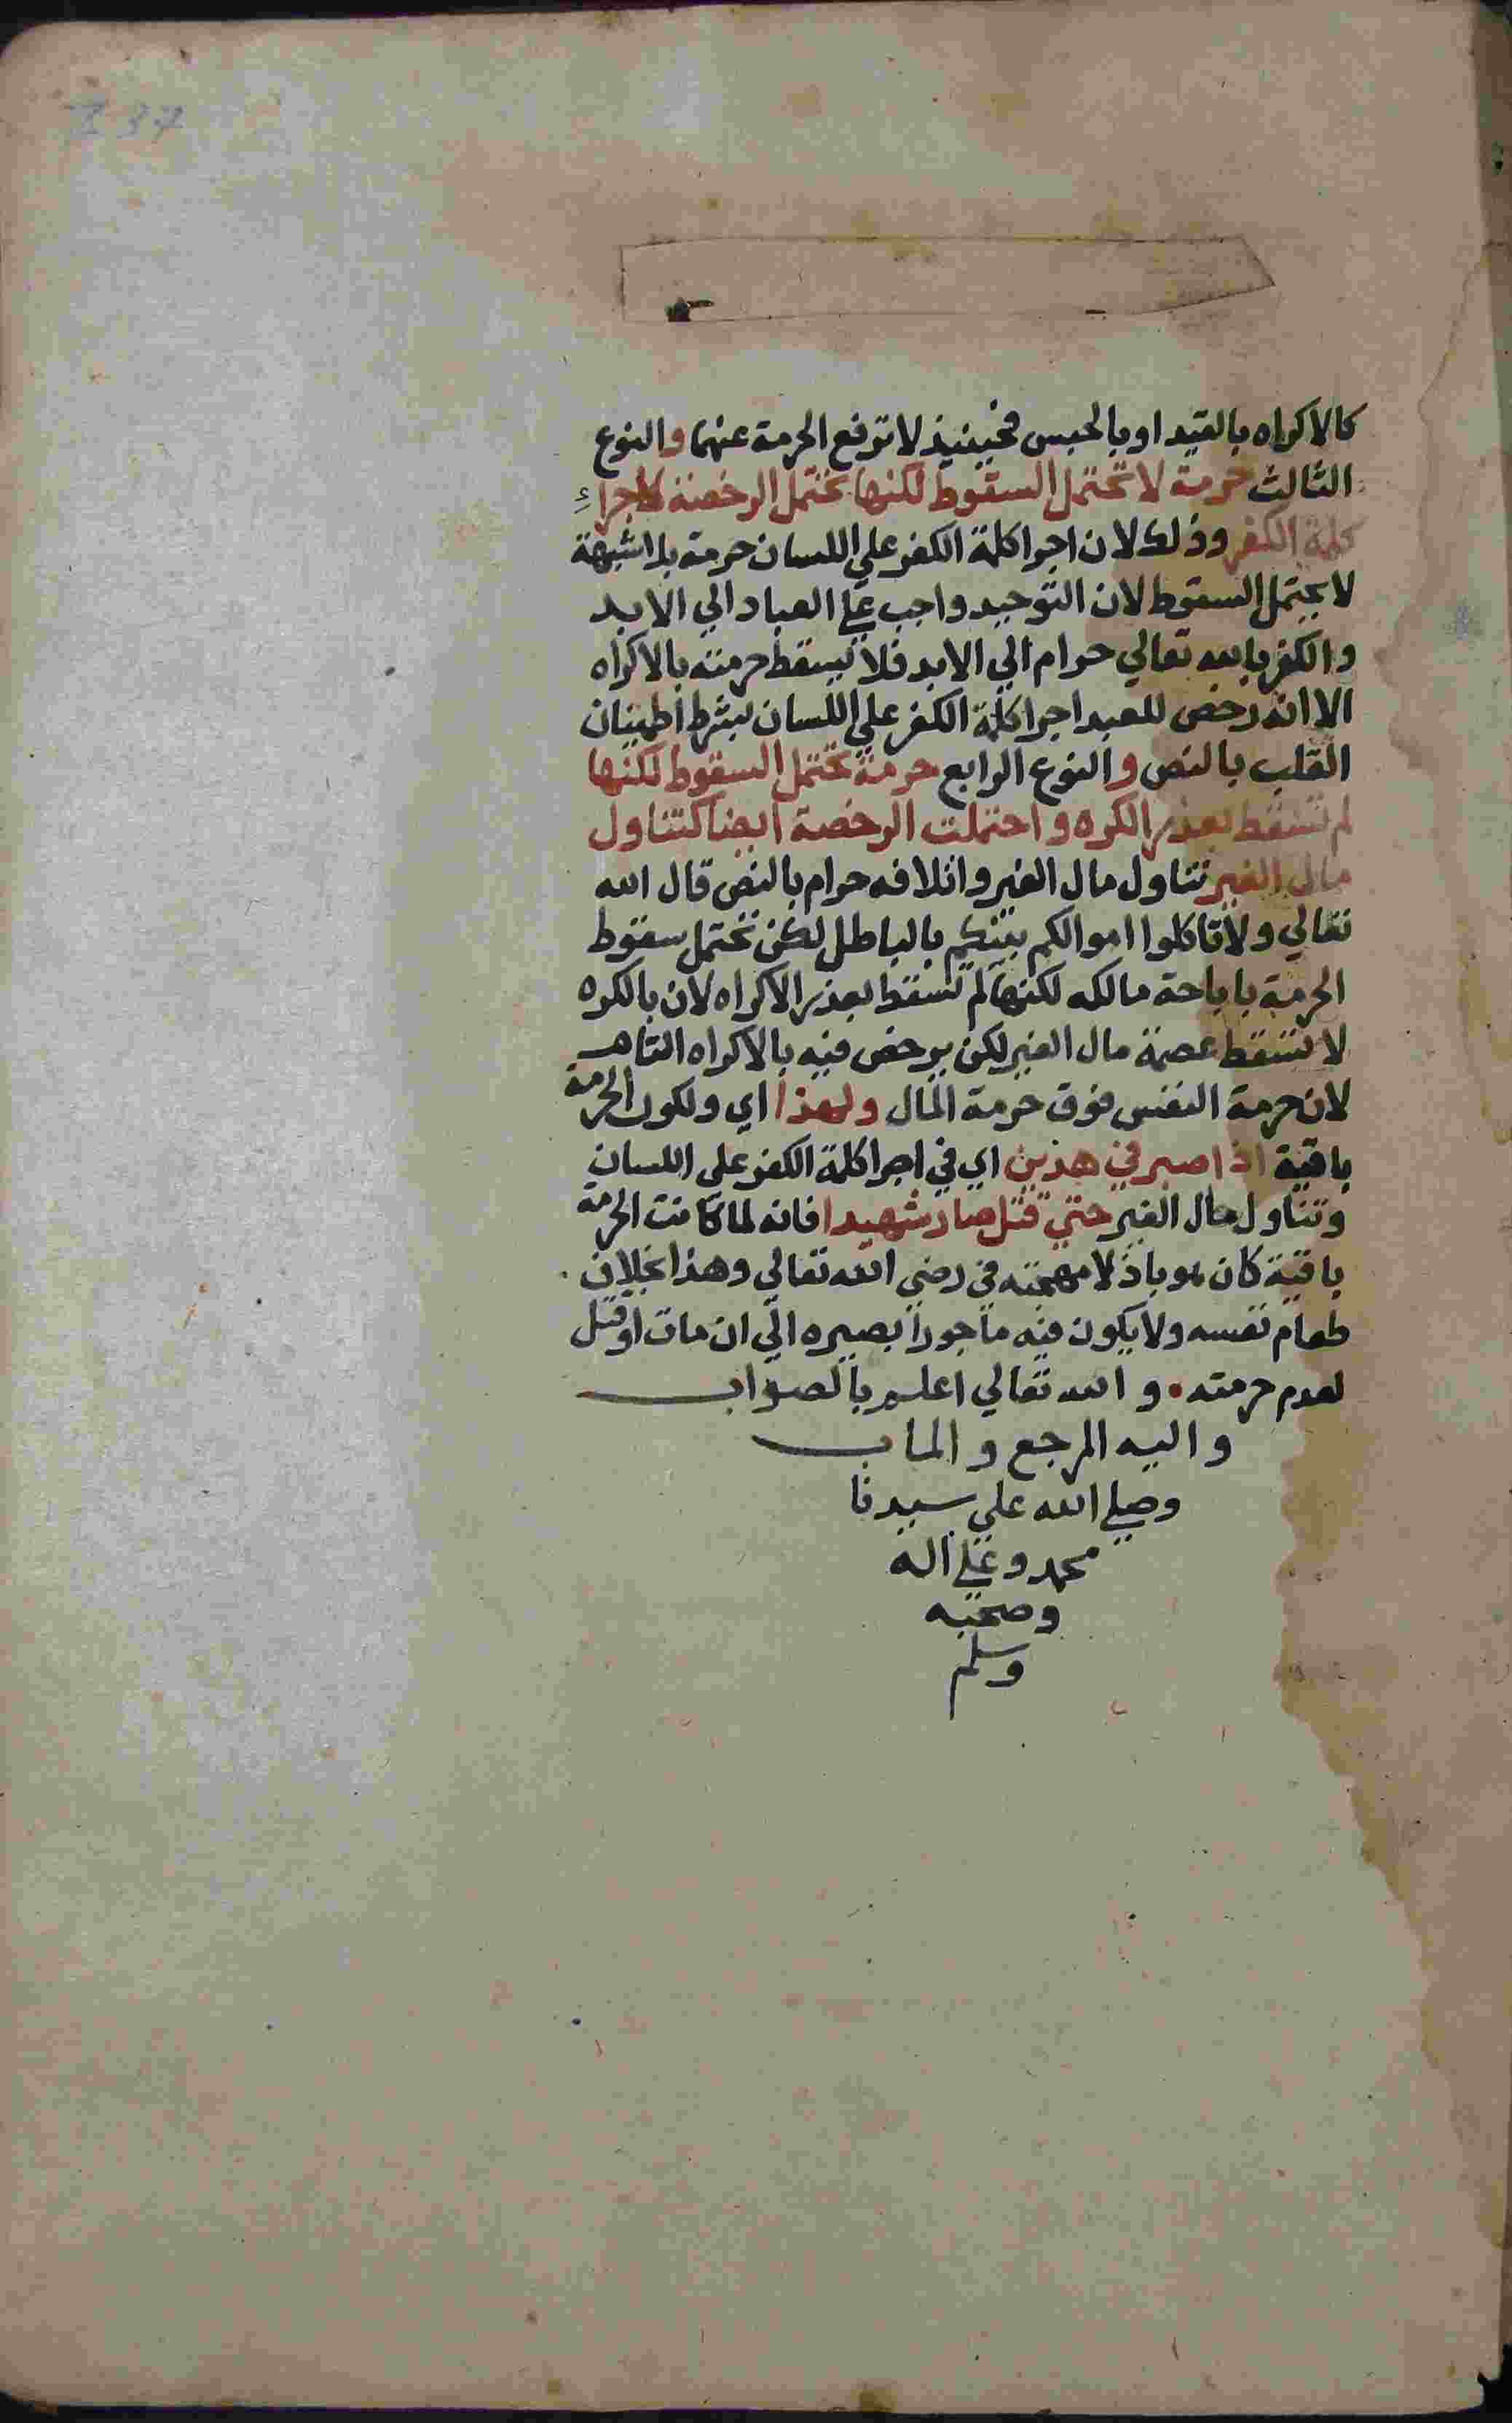 137
كالاكراه بالقيد او بالحبس فحينيذ لا ترفع الحرمة عنهما والنوع
الثالث حرمة لا تحتمل السقوط لكنها تحتمل الرخصة كاجراء
كلمة الكفر وذلك لان اجرا كلمة الكفر علي اللسان حرمة بلا شبهة
لا يحتمل السقوط لان التوحيد واجب علي العباد الي الابد
والكفر بالله تعالي حرام الي الابد فلا تسقط حرمته بالاكراه
الا انه رخص للعبد اجرا كلمة الكفر علي اللسان بشرط اطمينان
القلب بالنص والنوع الرابع حرمة تحتمل السقوط لكنها
لم تسقط بعذر الكره واحتملت الرخصة ايضا كتناول
مال الغير تناول مال الغير واتلافه حرام بالنص قال الله
تعالي ولا تاكلوا اموالكم بينكم بالباطل لكن تحتمل سقوط
الحرمة باباحة مالكه لكنها لم تسقط بعذر الاكراه لان بالكره
لا تسقط عصمة مال الغير لكن يرخص فيه بالاكراه التام
لان حرمة النفس فوق حرمة المال ولهذا اي ولكون الحرمة
باقية اذا صبر في هذين اي في اجرا كلمة الكفر علي اللسان
وتناول مال الغير حتي قتل صار شهيدا فانه لما كانت الحرمة
باقية كان هو باذلا مهجته في رضي الله تعالي وهذا بخلاف
طعام نفسه ولا يكون فيه ماجورا بصبره الي ان مات او قتل
لعدم حرمته . والله تعالي اعلم بالصواب
واليه المرجع والماب
وصلي الله علي سيدنا
محمد وعلي اله
وصحبه
وسلم